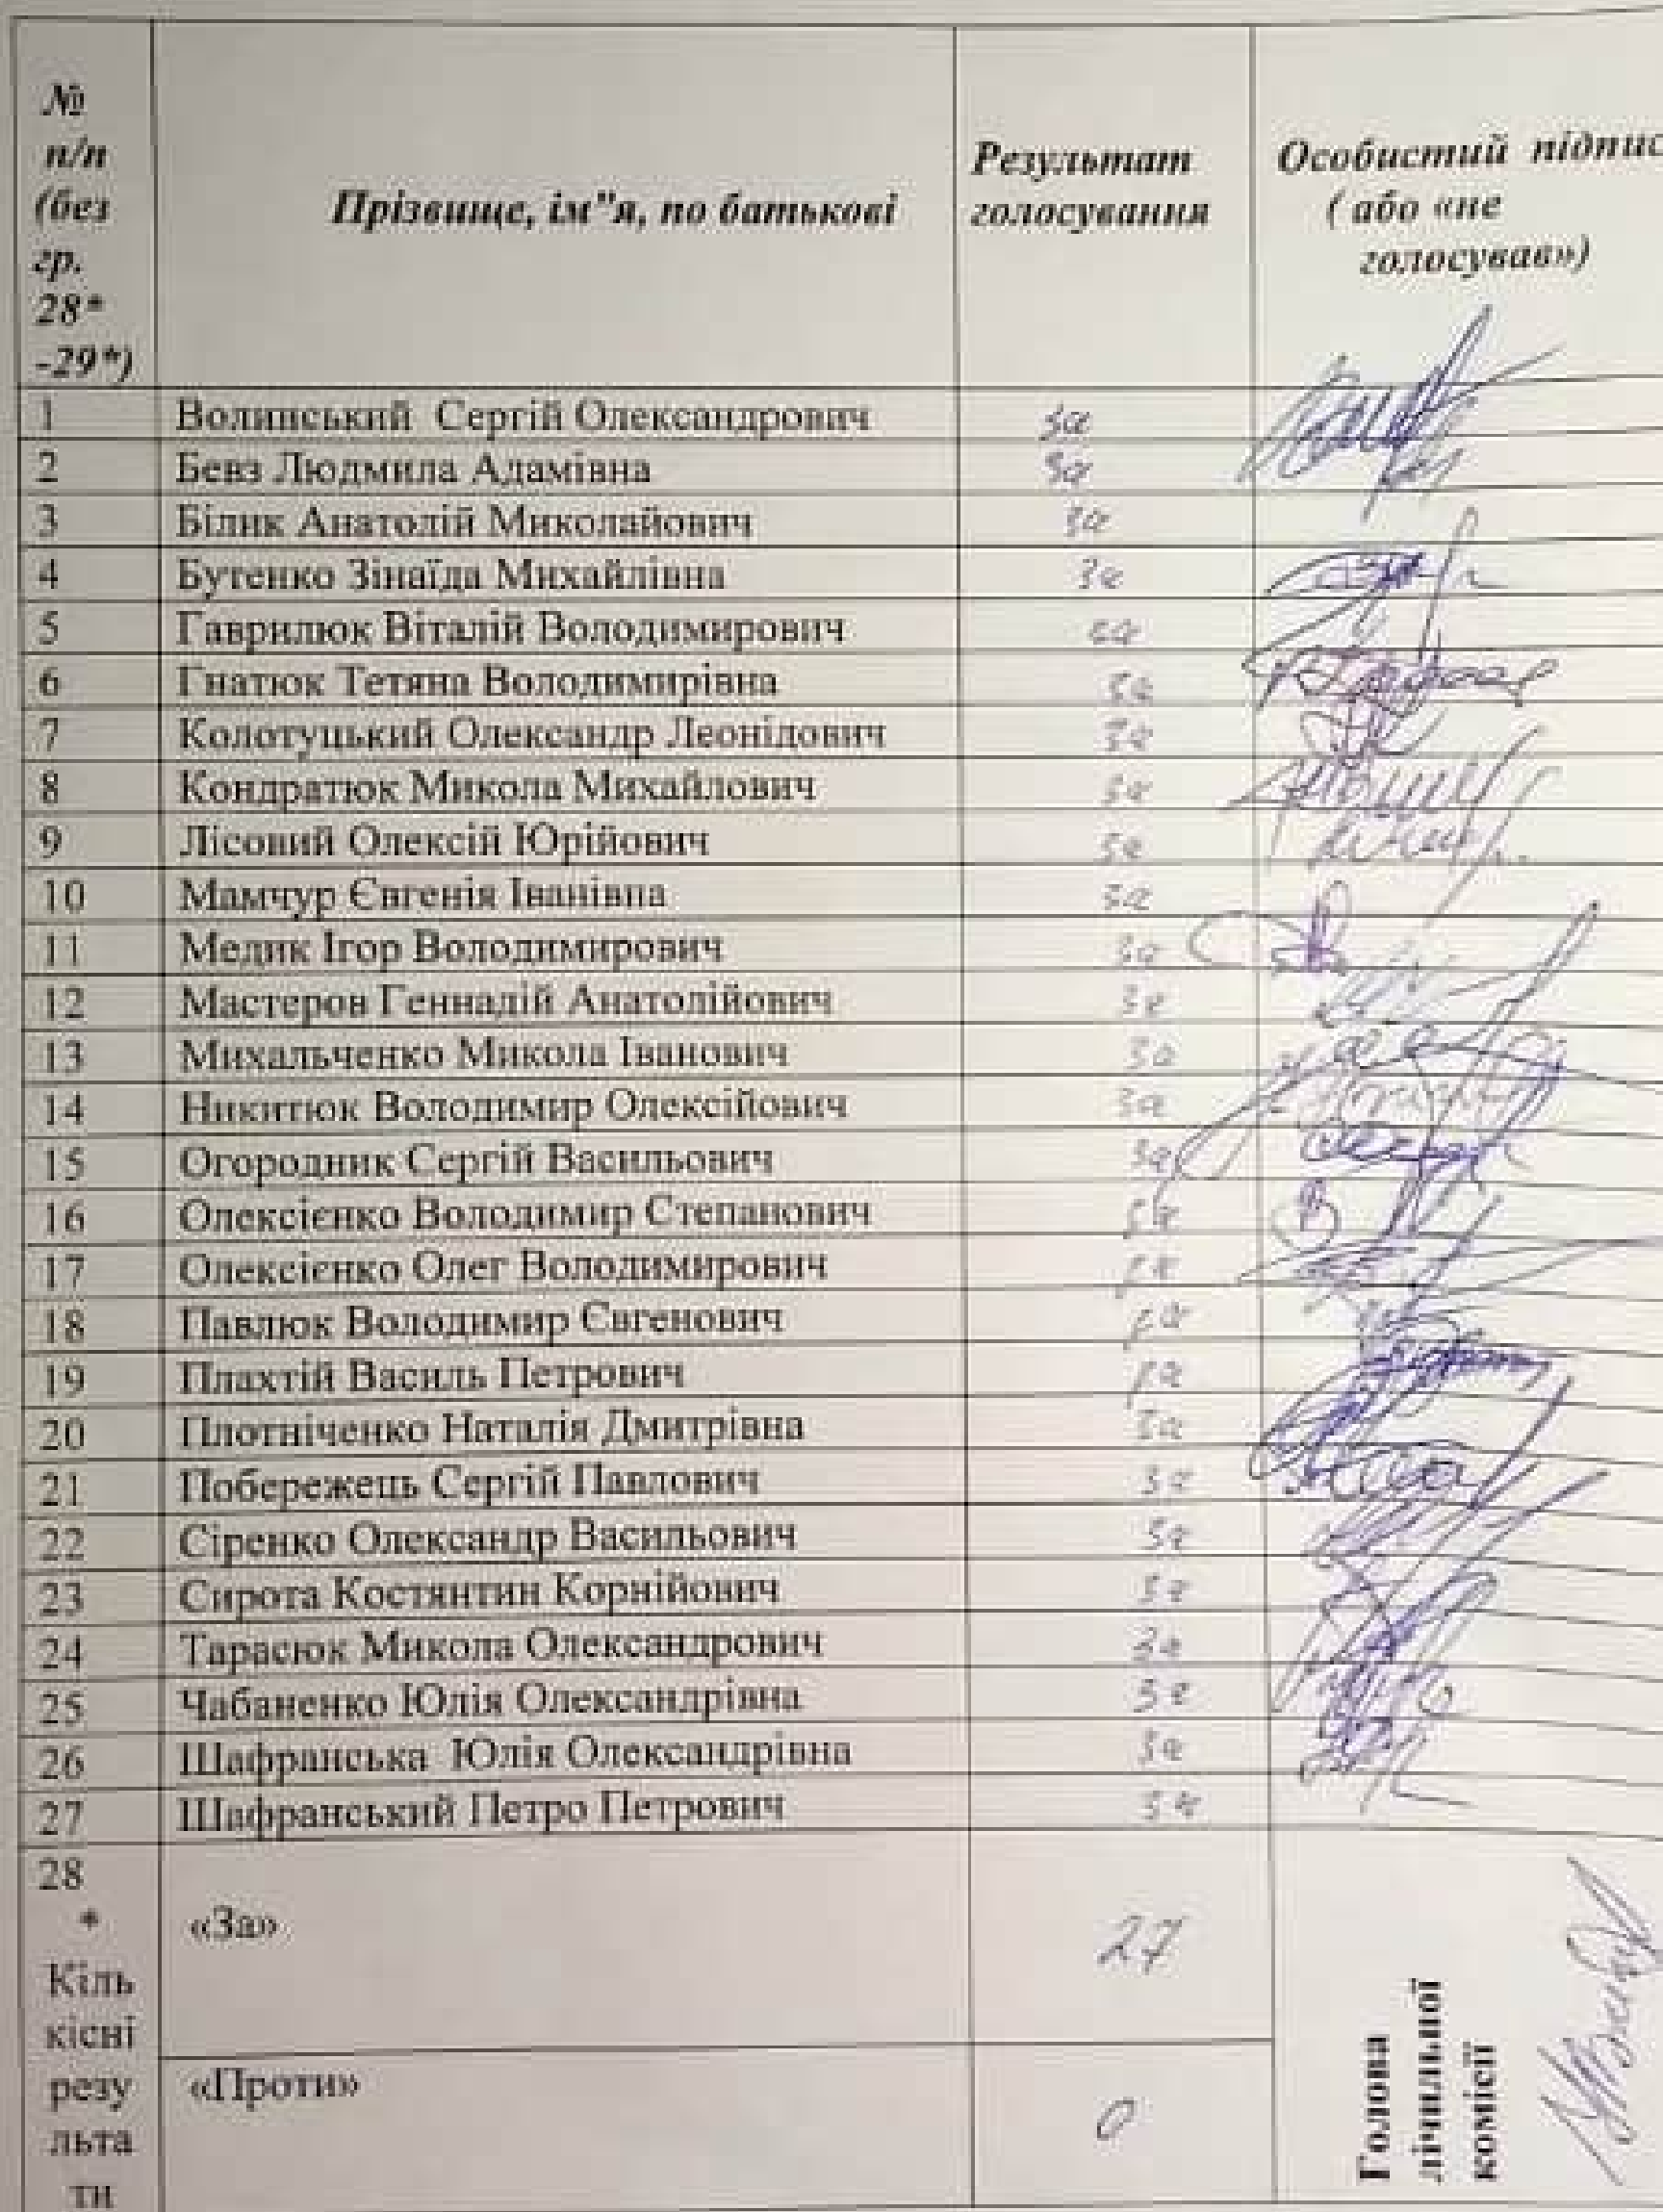 №
п/п
(без
гр.
28*
-29*)
Прізвище, ім"я, по батькові
Результат
голосування
Особистий підпис
( або «не
голосував»)
1 Волинський Сергій Олександрович за
2 Бевз Людмила Адамівна за
3 Білик Анатолій Миколайович за
4 Бутенко Зінаїда Михайлівна за
5 Гаврилюк Віталій Володимирович за
6 Гнатюк Тетяна Володимирівна за
7 Колотуцький Олександр Леонідович за
8 Кондратюк Микола Михайлович за
9 Лісовий Олексій Юрійович за
10 Мамчур Євгенія Іванівна за
11 Медик Ігор Володимирович за
12 Мастеров Геннадій Анатолійович за
13 Михальченко Микола Іванович за
14 Никитюк Володимир Олексійович за
15 Огородник Сергій Васильович за
16 Олексієнко Володимир Степанович за
17 Олексієнко Олег Володимирович за
18 Павлюк Володимир Євгенович за
19 Плахтій Василь Петрович за
20 Плотніченко Наталія Дмитрівна за
21 Побережець Сергій Павлович за
22 Сіренко Олександр Васильович за
23 Сирота Костянтин Корнійович за
24 Тарасюк Микола Олександрович за
25 Чабаненко Юлія Олександрівна за
26 Шафранська Юлія Олександрівна за
27 Шафранський Петро Петрович за
28
*
Кіль
кісні
резу
льта
ти
«За» 27
«Проти» 0
Голова
лічильної
комісії